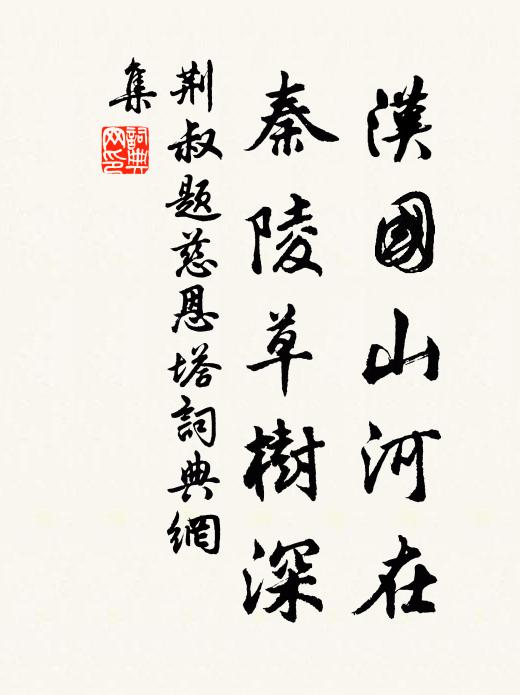 漢國山河在
秦陵草樹深
荆叔題慈恩塔詞典網
集
詞典網印